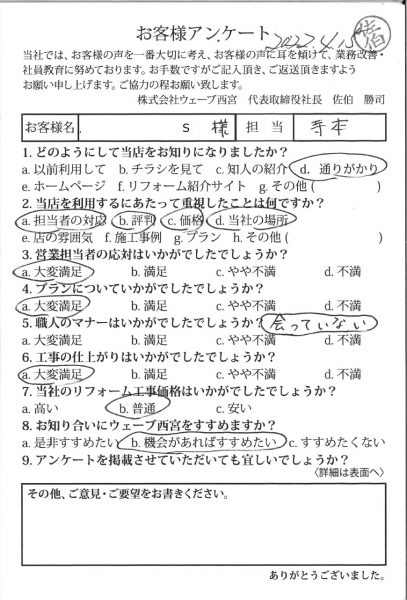 お客様アンケート 2022.4.15 佐伯
当社では、お客様の声を一番大切に考え、お客様の声に耳を傾けて、業務改善・
社員教育に努めております。お手数ですがご記入頂き、ご返送頂きますよう
お願い申し上げます。ご協力の程お願い致します。
株式会社ウェーブ西宮 代表取締役社長 佐伯 勝司
お客様名 S 様 担当 寺本
1. どのようにして当店をお知りになりましたか?
a. 以前利用して b. チラシを見て c. 知人の紹介 d. 通りがかり
e. ホームページ f. リフォーム紹介サイト g. その他 ( )
2. 当店を利用するにあたって重視したことは何ですか?
a. 担当者の対応 b. 評判 c. 価格 d. 当社の場所
e. 店の雰囲気 f. 施工事例 g. プラン h. その他 ( )
3. 営業担当者の応対はいかがでしたでしょうか?
a. 大変満足 b. 満足 c. やや不満 d. 不満
4. プランについていかがでしたでしょうか?
a. 大変満足 b. 満足 c. やや不満 d. 不満
5. 職人のマナーはいかがでしたでしょうか? 会っていない
a. 大変満足 b. 満足 c. やや不満 d. 不満
6. 工事の仕上がりはいかがでしたでしょうか?
a. 大変満足 b. 満足 c. やや不満 d. 不満
7. 当社のリフォーム工事価格はいかがでしたでしょうか?
a. 高い b. 普通 c. 安い
8. お知り合いにウェーブ西宮をすすめますか?
a. 是非すすめたい b. 機会があればすすめたい c. すすめたくない
9. アンケートを掲載させていただいても宜しいでしょうか?
〈詳細は表面へ〉
その他、ご意見・ご要望をお書きください。
ありがとうございました。